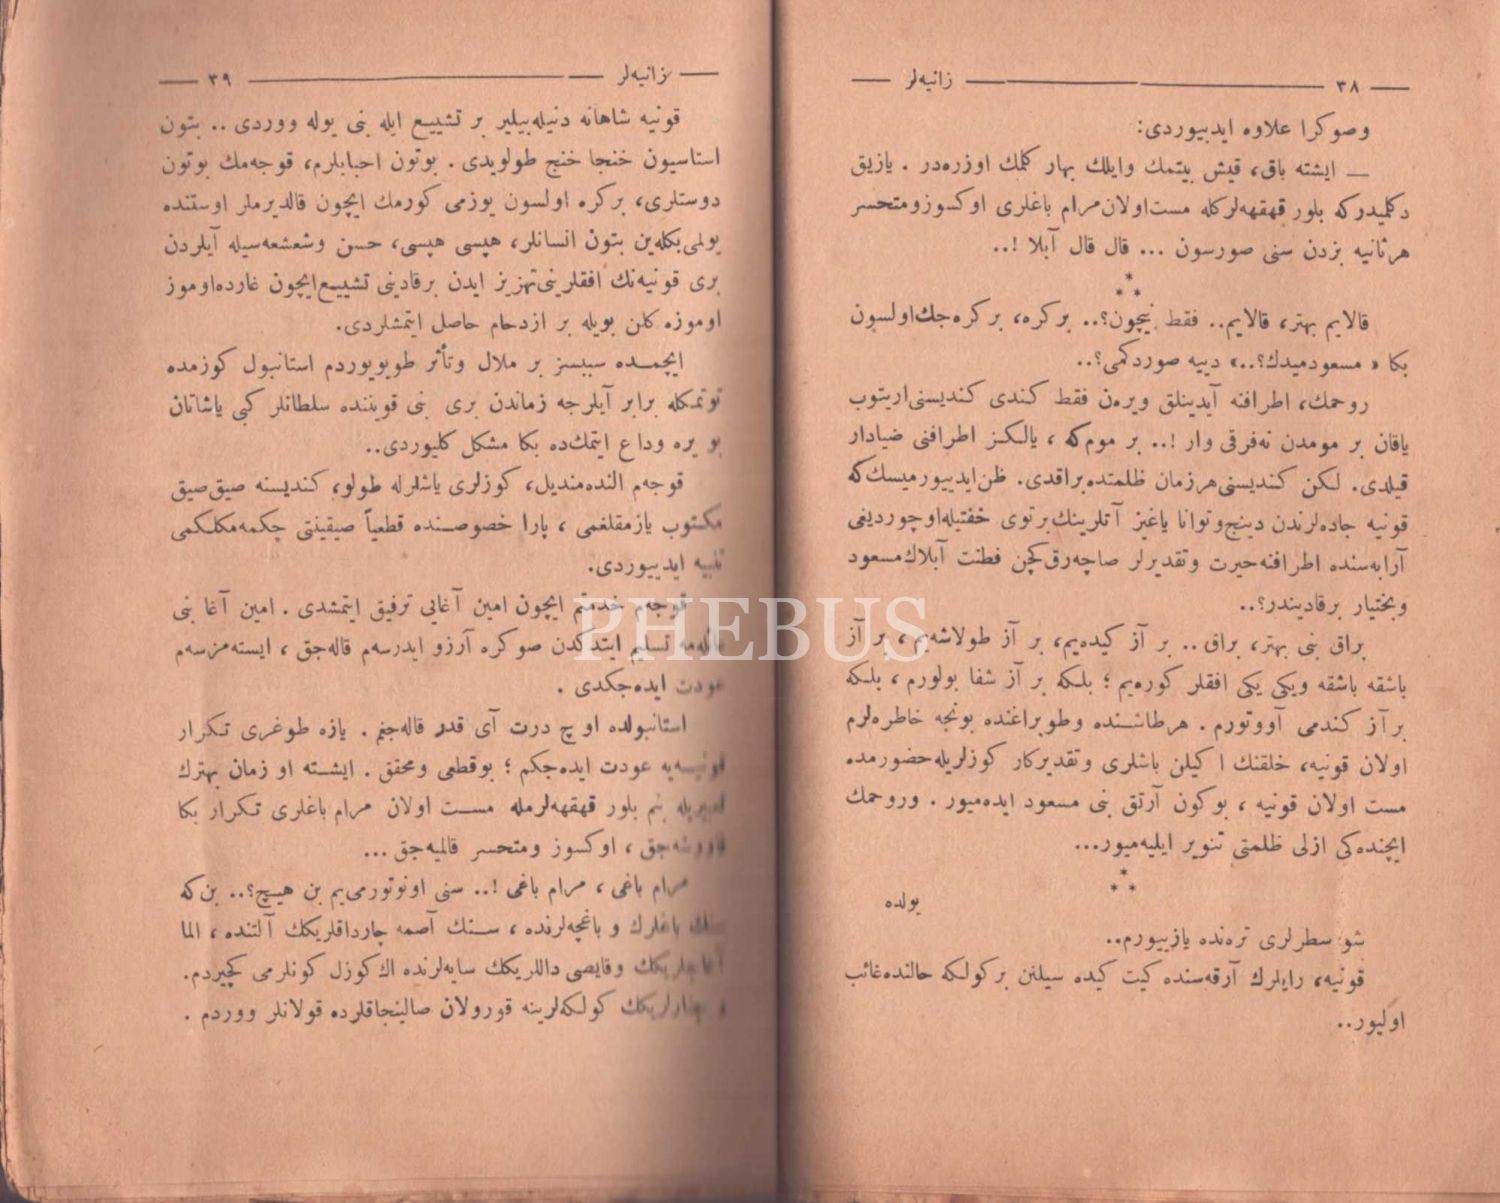 ٣٨ زانیه‌لر
وصوكرا علاوه ایدییوردی:
— ایشته باق، قیش بیتمك وایلك بهار كلمك اوزره‌در . یازیق
دكلمیدركه بلور قهقهه‌لركله مست‌اولان‌مرام باغلری اوكسوزومتحسر
هرثانیه بزدن سنی صورسون ... قال قال آبلا !..
* * *
قالایم بهتر، قالایم.. فقط نیچون؟.. بركره، بركره‌جك‌اولسون
بكا « مسعودمیدك؟..» دییه صوردكمی؟..
روحمك، اطرافنه آیدینلق ویره‌ن فقط كندی كندیسنی‌اریتوب
یاقان بر مومدن نه‌فرقی وار !.. بر موم‌كه ، یالكز اطرافنی ضیادار
قیلدی. لكن كندیسنی‌هرزمان ظلمتده‌براقدی. ظن‌ایدییورمیسك‌كه
قونیه جاده‌لرندن دینج‌وتوانا یاغیز آتلرینك‌برتوی خفتیله‌اوچوردیغی
آرابه‌سنده اطرافنه‌حیرت وتقدیرلر صاچه‌رق‌كچن فطنت آبلاك‌مسعود
وبختیار برقادیندر؟..
براق بنی بهتر، براق.. بر آز كیده‌یم، بر آز طولاشه‌یم، بر آز
باشقه باشقه ویكی یكی افقلر كوره‌یم ؛ بلكه بر آز شفا بولورم ، بلكه
برآز كندمی آووتورم . هرطاشنده وطوبراغنده بونجه خاطره‌لرم
اولان قونیه، خلقنك اكیلن باشلری وتقدیركار كوزلریله‌حضورمده
مست اولان قونیه ، بوكون آرتق بنی مسعود ایده‌میور . وروحمك
ایچنده‌كی ازلی ظلمتی تنویر ایلیه‌میور...
* * *
یولده
شو سطرلری تره‌نده یازییورم..
قونیه، رایلرك آرقه‌سنده كیت كیده سیلنن بركولكه حالنده‌غائب
اولیور..
زانیه‌لر ٣٩
قونیه شاهانه دنیله‌بیلیر بر تشییع ایله بنی یوله ووردی .. بتون
استاسیون خنجا خنج طولویدی . بوتون احبابلرم، قوجه‌مك بوتون
دوستلری، بركره اولسون یوزمی كورمك ایچون قالدیرملر اوستنده
یولمی‌بكله‌ین بتون انسانلر، هپسی هپسی، حسن وشعشعه‌سیله آیلردن
بری قونیه‌نك افقلرینی‌تهزیز ایدن برقادینی تشییع‌ایچون غارده‌اوموز
اوموزه كلن بویله بر ازدحام حاصل ایتمشلردی.
ایچمده سببسز بر ملال وتأثر طویویوردم استانبول كوزمده
توتمكله برابر آیلرجه زماندن بری بنی قویننده سلطانلر كبی یاشاتان
بو یره وداع ایتمك‌ده بكا مشكل كلیوردی..
قوجه‌م النده‌مندیل، كوزلری یاشلرله طولو، كندیسنه صیق‌صیق
مكتوب یازمقلغمی ، پارا خصوصنده قطعیاً صیقینتی چكمه‌مكلكمی
تنبیه ایدییوردی.
قوجه‌م خدمتم ایچون امین آغایی ترفیق ایتمشدی . امین آغا بنی
تسلیم ایتدكدن صوكره آرزو ایدرسه‌م قاله‌جق ، ایسته‌مزسه‌م
عودت ایده‌جكدی .
استانبولده اوچ درت آی قدر قاله‌جغم . یازه طوغری تكرار
قونیه‌یه عودت ایده‌جكم ؛ بوقطعی ومحقق . ایشته او زمان بهترك
تعبیریله بنم بلور قهقهه‌لرمله مست اولان مرام باغلری تكرار بكا
قاووشه‌جق ، اوكسوز ومتحسر قالمیه‌جق...
مرام باغی ، مرام باغی !.. سنی اونوتورمی‌یم بن هیچ؟.. بن‌كه
سنك باغلرك و باغچه‌لرنده ، سنك آصمه چارداقلریكك آلتنده ، الما
آغاچلریكك وقایصی داللریكك سایه‌لرنده اك‌كوزل كونلرمی كچیردم.
و چنارلریكك كولكه‌لرینه قورولان صالینجاقلرده قولانلر ووردم .
PHEBUS